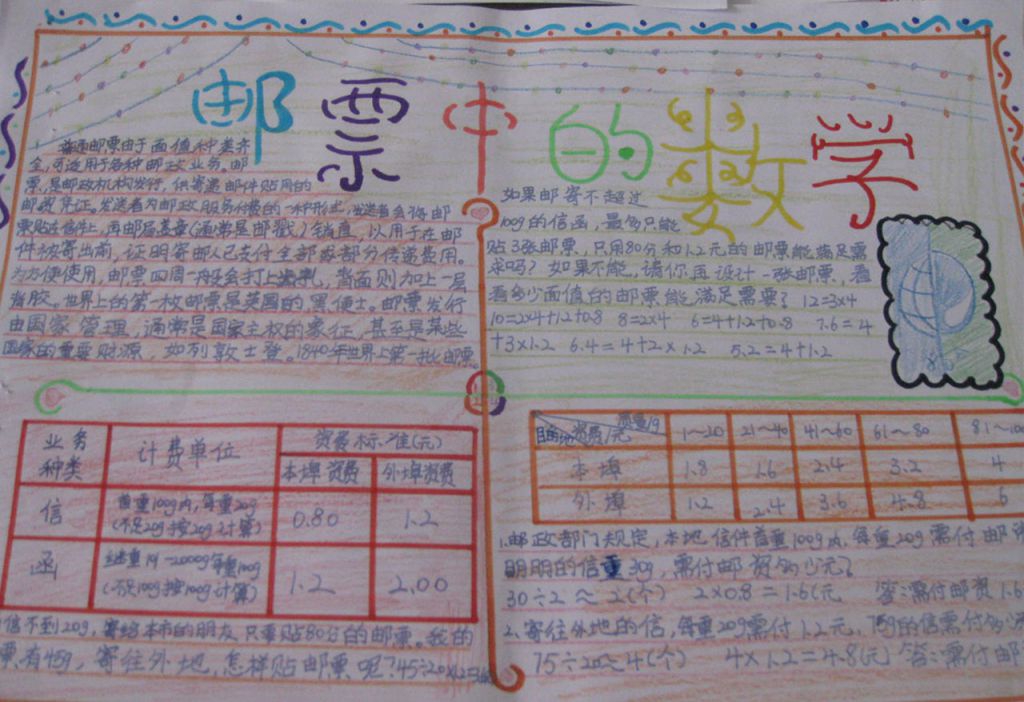 邮票中的数学
普通邮票由于面值种类齐
全,可适用于各种邮政业务。邮
票,是邮政机构发行,供寄递邮件贴用的
邮资凭证。发送者为邮政服务付费的一种形式,发送者会将邮
票贴在信件上,再由邮局盖章(通常是邮戳)销值,以用于在邮
件被寄出前,证明寄邮人已支付全部或部分传递费用。
为方便使用,邮票四周一般会打上齿孔,背面则加上一层
背胶。世界上的第一枚邮票是英国的黑便士。邮票发行
由国家管理,通常是国家主权的象征,甚至是某些
国家的重要财源,如列敦士登。1840年世界上第一批邮票
如果邮寄不超过
100g的信函,最多只能
贴3张邮票,只用80分和1.2元的邮票能满足需
求吗?如果不能,请你再设计一张邮票,看
看多少面值的邮票能满足需要?12=3×4
10=2×4+1.2+0.8 8=2×4 6=4+1.2+0.8 7.6=4
+3×1.2 6.4=4+2×1.2 5.2=4+1.2
业务种类 计费单位 资费标准(元)
本埠资费 外埠资费
信 首重100g内,每重20g 0.80 1.2
(不足20g按20g计算)
函 续重101-2000g每重100g 1.2 2.00
(不足100g按100g计算)
信不到20g,寄给本市的朋友只要贴80分的邮票。我的
有45g,寄往外地,怎样贴邮票呢?45÷20
目的地 资费/元 质量/g 1~20 21~40 41~60 61~80 81~100
本埠 1.8 1.6 2.4 3.2 4
外埠 1.2 2.4 3.6 4.8 6
1.邮政部门规定,本地信件首重100g内,每重20g需付邮
明明的信重30g,需付邮资多少元?
30÷2≈2(个) 2×0.8=1.6(元 答:需付邮资1.6
2、寄往外地的信,每重20g需付1.2元,75g的信需付多
75÷20≈4(个) 4×1.2=4.8(元) 答:需付邮